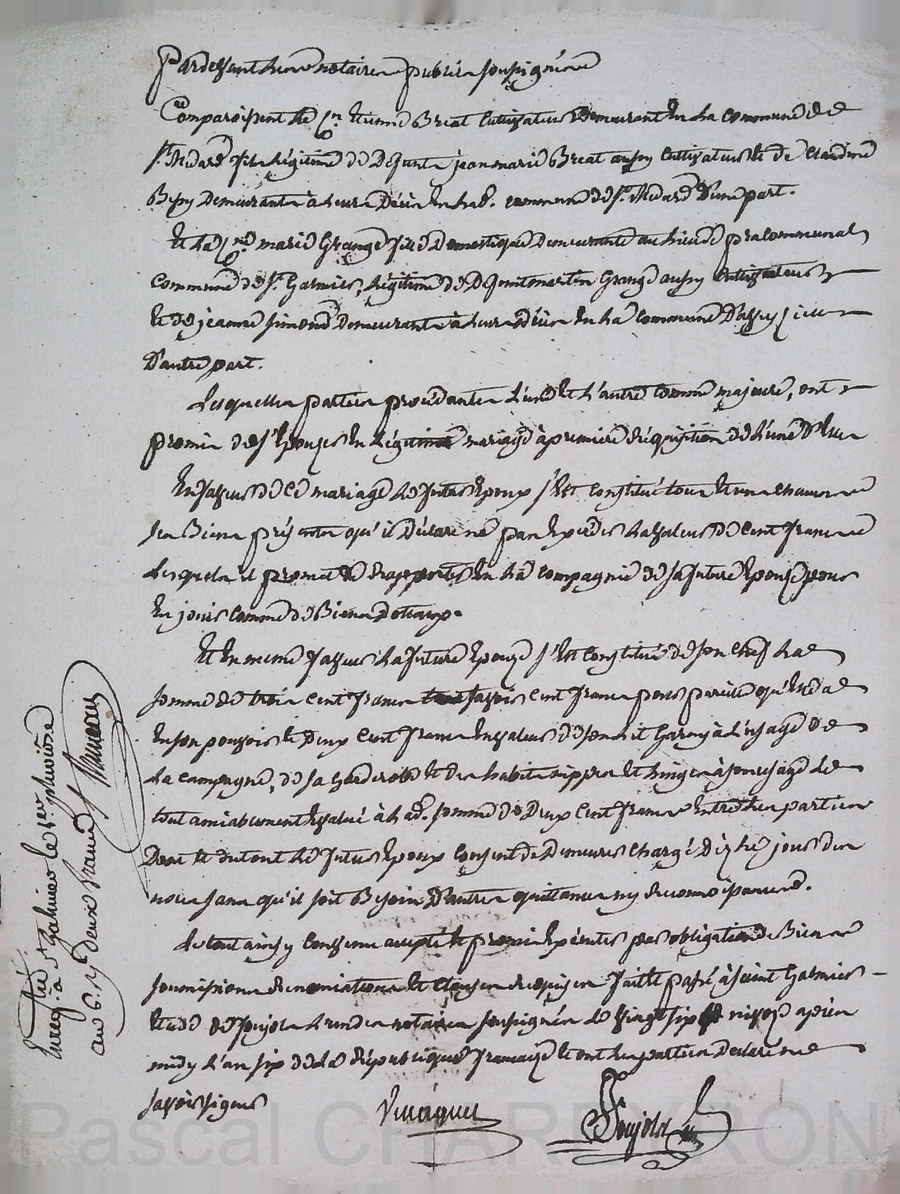 Pardevant les notaires publics soussignés
Comparoissent le Cen Etienne Breat cultivateur demeurant en la commune de
St. Medard fils légitime de defunts jean marie Breat aussy cultivateur et de claudine
demeurants à leur décès en lad. commune de St. Medard d'une part.
Et la Cne marie Grange fille domestique demeurante au lieu de pracommunal
commune de St. Galmier, légitime de defunts martin Grange aussy cultivateur
et de jeanne Simond demeurants à leur décès en la commune
D'autre part.
Lesquelles parties procédantes l'une et l'autre comme majeures, ont
promis de s'épouser en légitime mariage à première réquisition de l'une d'elles
En faveur de ce mariage le futur époux s'est constitué tous et un chacuns
ses Biens présents qu'il déclare ne pas excéder la valeur de cent francs
lesquels il promet de apporter en la compagnie de sa future épouse pour
en jouir comme de Biens dotaux.
Et en meme faveur la future épouse s'est constitué de son chef la
somme de trois cent francs savoir cent francs pour pareils qu'elle a
en son pouvoir et deux cent francs en valeur de son lit garny à l'usage de
la campagne, de sa garderobe et des habits nippes et linges à son usage le
tout amiablement évalué à lad. somme de deux cent francs entre les parties
Dont et du tout le futur époux consent de demeurer chargé dez le jour des
noces sans qu'il soit Besoin d'autre quittance ny reconnoissance.
Le tout ainsy convenu accepté et promis exécuter par obligation de Biens
soumissions renonciations et clauses requises fait et passé à Saint Galmier
Etude de Soujol l'un des notaires soussignés le vingt six nivose après
midy l'an six de la République française et ont les parties déclaré ne
savoir signer
Soujol
Enreg. à St galmier le 1er pluviôse
an 6. Rv deux francs